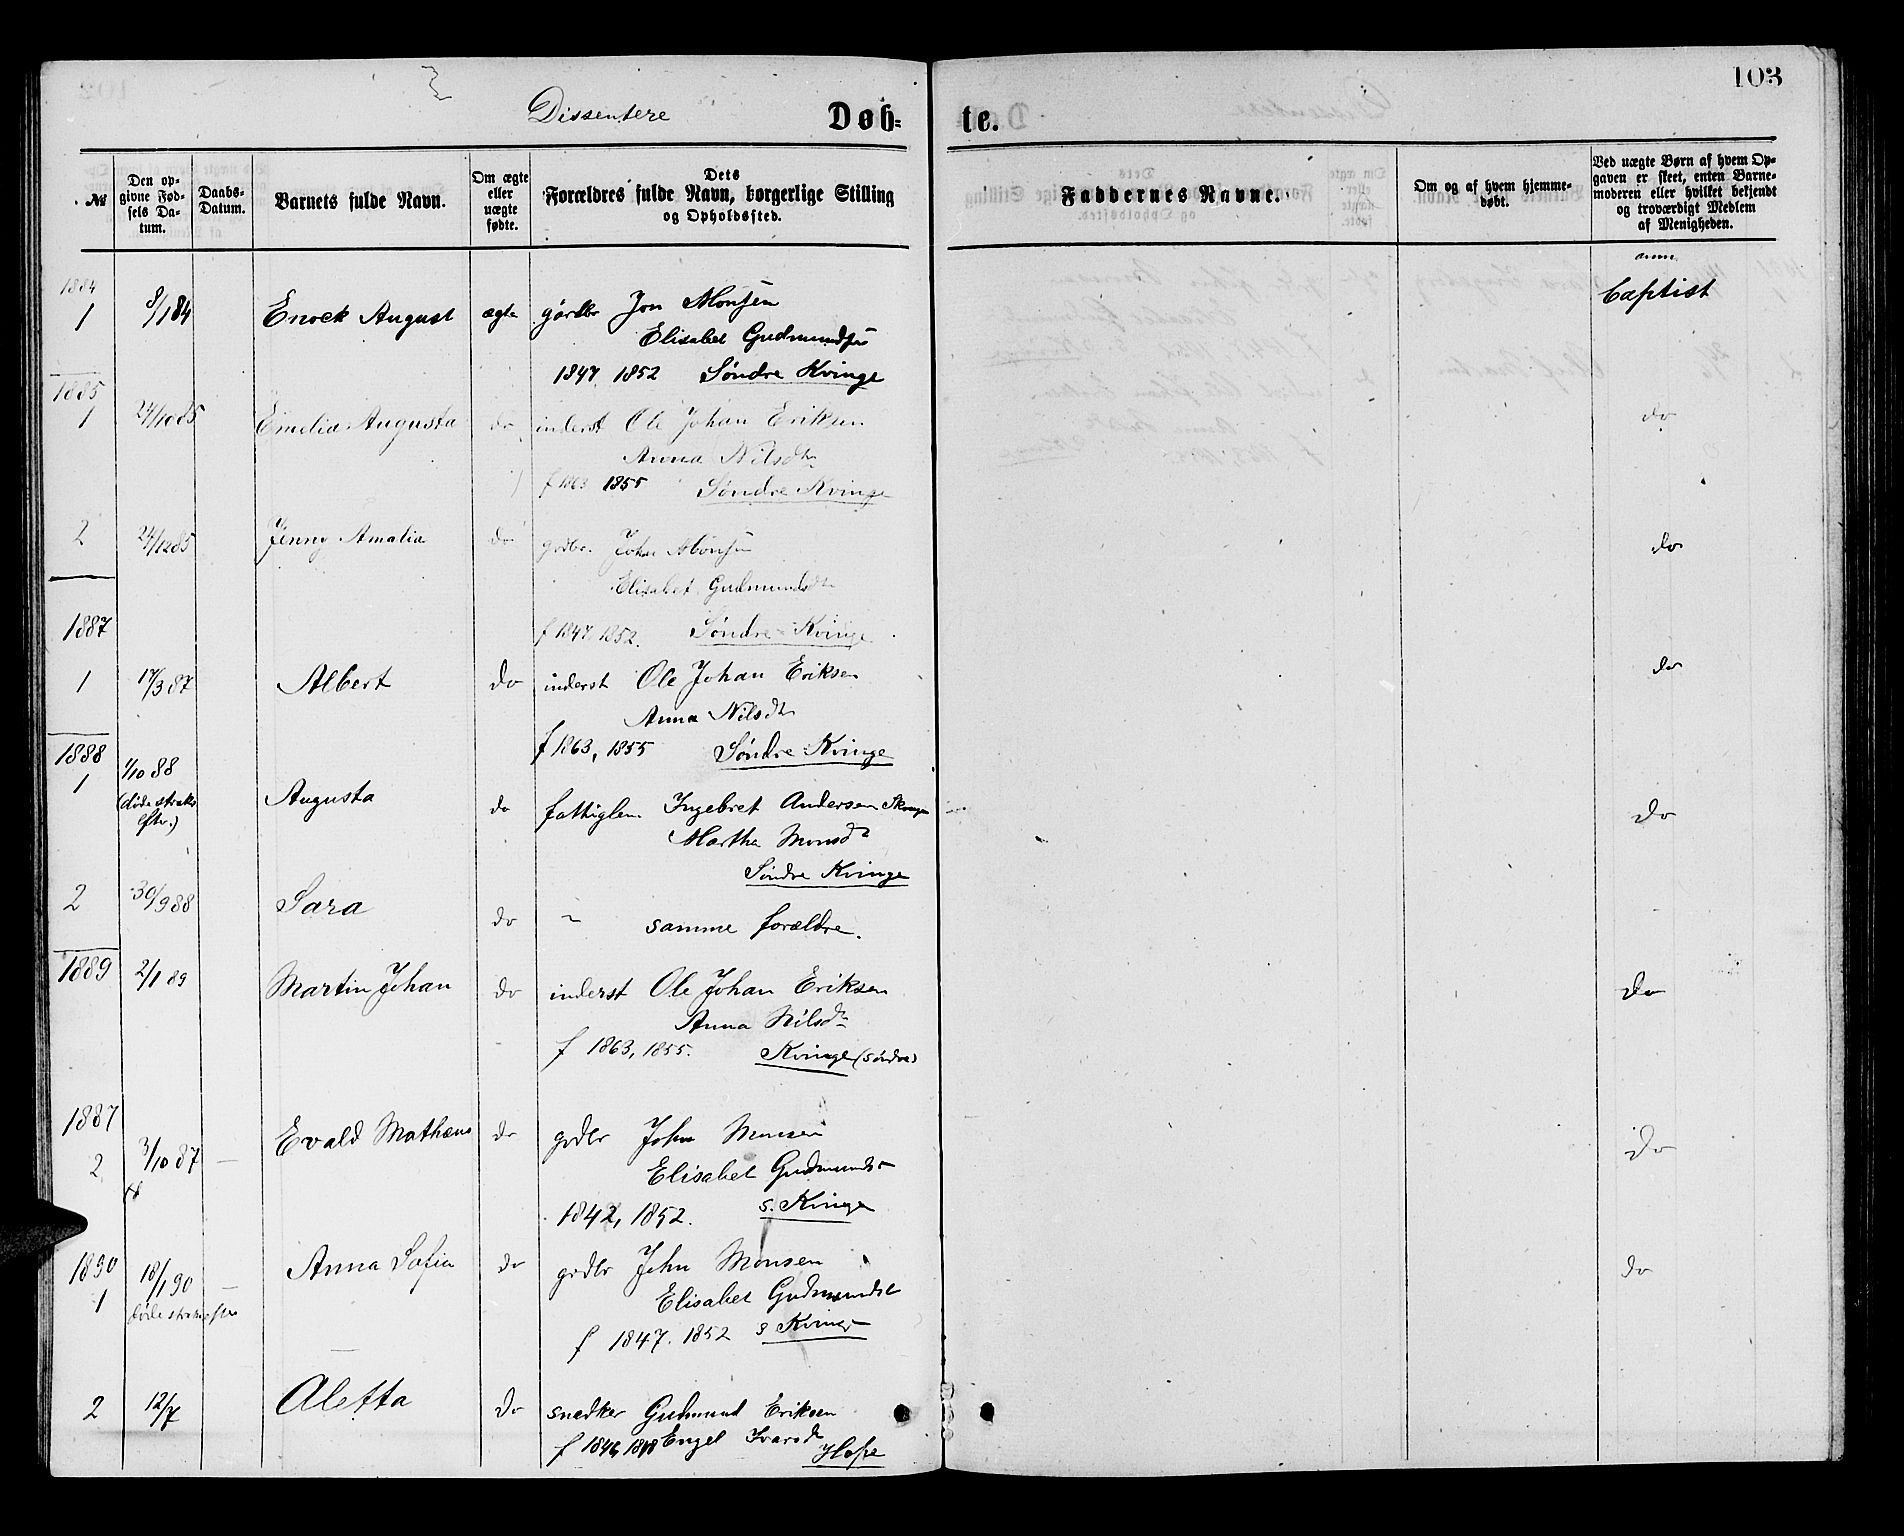 103
Dissentere Døb= te.
№
Den op-
givne Fød-
sels Da-
tum.
Daabs-
Datum.
Barnets fulde Navn.
Om ægte
eller
uægte
fødte.
Dets
Forældres fulde Navn, borgerlige Stilling
og Opholdssted.
Faddernes Navne.
Om og af hvem hjemme-
døbt.
Ved uægte Børn af hvem Op-
gaven er skeet, enten Barne-
moderen eller hvilket bekjendt
og troværdigt Medlem
af Menigheden.
anm.
1884
1 8/1 84 Enock August ægte gårdbr Jon Monsen Baptist
Elisabet Gudmundsd
1847, 1852 Søndre Kvinge
1885
1 24/10 85 Emelia Augusta do inderst Ole Johan Eriksen do
Anna Nilsdtr
f 1863 1855 Søndre Kvinge
2 24/12 85 Jenny Amalia do grdbr. John Monsen do
Elisabet Gudmundsdtr
f 1847, 1852. Søndre Kvinge
1887
1 17/3 87 Albert do inderst Ole Johan Eriksen do
Anna Nilsdtr
f 1863, 1855 Søndre Kvinge
1888
1 1/10 88 Augusta do fattiglem Ingebret Andersen do
(døde straks
efter.)
Martha Monsdtr
Søndre Kvinge
2 30/9 88 Sara do " samme forældre.
1889 2/1 89 Martin Johan do inderst Ole Johan Eriksen do
Anna Nilsdtr
f 1863, 1855. Kvinge (søndre)
1887
2 3/10 87 — Evald Mathæus do grdbr John Monsen do
Elisabet Gudmundsd
1842, 1852. s. Kvinge
1890
1 18/1 90 — Anna Sofia do grdbr John Monsen do
døde straks efter
Elisabet Gudmundsd
f 1847. 1852 s Kvinge
2 12/7 Aletta do snedker Gudmund Eriksen
f 1846, 1848 Engel Ivarsd
Hope